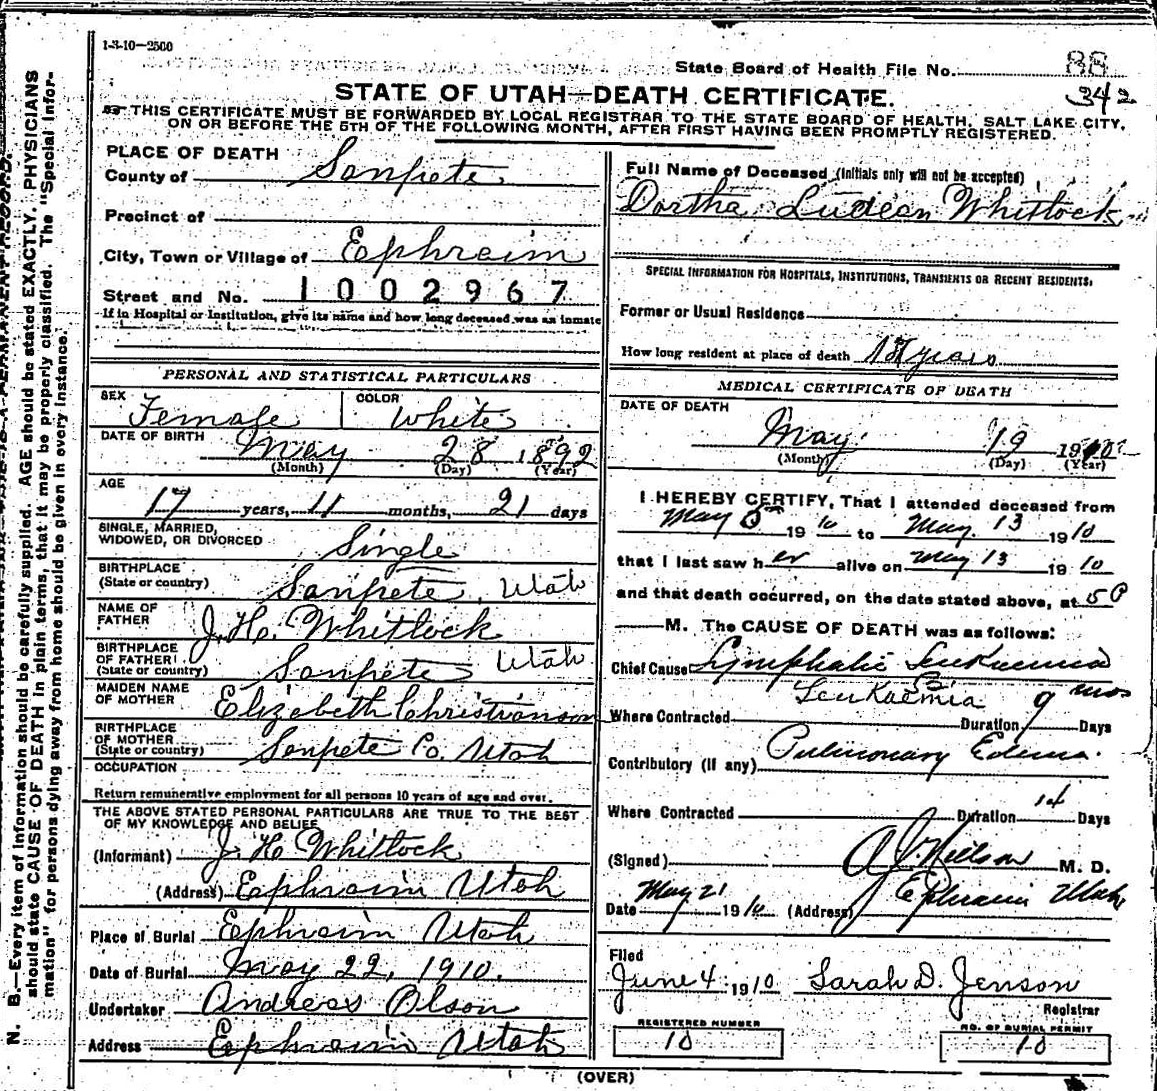 1-3-10—2500
State Board of Health File No. 88
342
STATE OF UTAH—DEATH CERTIFICATE.
THIS CERTIFICATE MUST BE FORWARDED BY LOCAL REGISTRAR TO THE STATE BOARD OF HEALTH, SALT LAKE CITY,
ON OR BEFORE THE 5TH OF THE FOLLOWING MONTH, AFTER FIRST HAVING BEEN PROMPTLY REGISTERED.
PLACE OF DEATH
County of Sanpete
Precinct of
City, Town or Village of Ephraim
Street and No. 1002967
If in Hospital or Institution, give its name and how long deceased was an inmate
PERSONAL AND STATISTICAL PARTICULARS
SEX Female COLOR White
DATE OF BIRTH May 28 1892
(Month) (Day) (Year)
AGE
17 years, 11 months, 21 days
SINGLE, MARRIED,
WIDOWED, OR DIVORCED Single
BIRTHPLACE
(State or country) Sanpete, Utah
NAME OF
FATHER J. H. Whitlock
BIRTHPLACE
OF FATHER
(State or country) Sanpete Utah
MAIDEN NAME
OF MOTHER Elizabeth Christianson
BIRTHPLACE
OF MOTHER
(State or country) Sanpete Co. Utah
OCCUPATION
Return remunerative employment for all persons 10 years of age and over.
THE ABOVE STATED PERSONAL PARTICULARS ARE TRUE TO THE BEST
OF MY KNOWLEDGE AND BELIEF
(Informant) J. H. Whitlock
(Address) Ephraim Utah
Place of Burial Ephraim Utah
Date of Burial May 22, 1910.
Undertaker Andreas Olson
Address Ephraim Utah
Full Name of Deceased (Initials only will not be accepted)
Dortha Ludean Whitlock
SPECIAL INFORMATION FOR HOSPITALS, INSTITUTIONS, TRANSIENTS OR RECENT RESIDENTS.
Former or Usual Residence
How long resident at place of death years
MEDICAL CERTIFICATE OF DEATH
DATE OF DEATH
May 19 1910
(Month) (Day) (Year)
I HEREBY CERTIFY, That I attended deceased from
May 1910 to May. 13 1910
that I last saw her alive on May 13 1910
and that death occurred, on the date stated above, at 5 P
M. The CAUSE OF DEATH was as follows:
Chief Cause Lymphatic Leukaemia
Leukaemia 9 mos
Where Contracted Duration Days
Contributory (if any) Pulmonary Edema.
Where Contracted Duration 14 Days
(Signed) A J Nielson M. D.
Date May 21 1910 (Address) Ephraim Utah
Filed
June 4 1910 Sarah D. Jenson
Registrar
REGISTERED NUMBER
10
NO. OF BURIAL PERMIT
10
(OVER)
N. B.—Every item of information should be carefully supplied. AGE should be stated EXACTLY. PHYSICIANS
should state CAUSE OF DEATH in plain terms, that it may be properly classified. The "Special Infor-
mation" for persons dying away from home should be given in every instance.